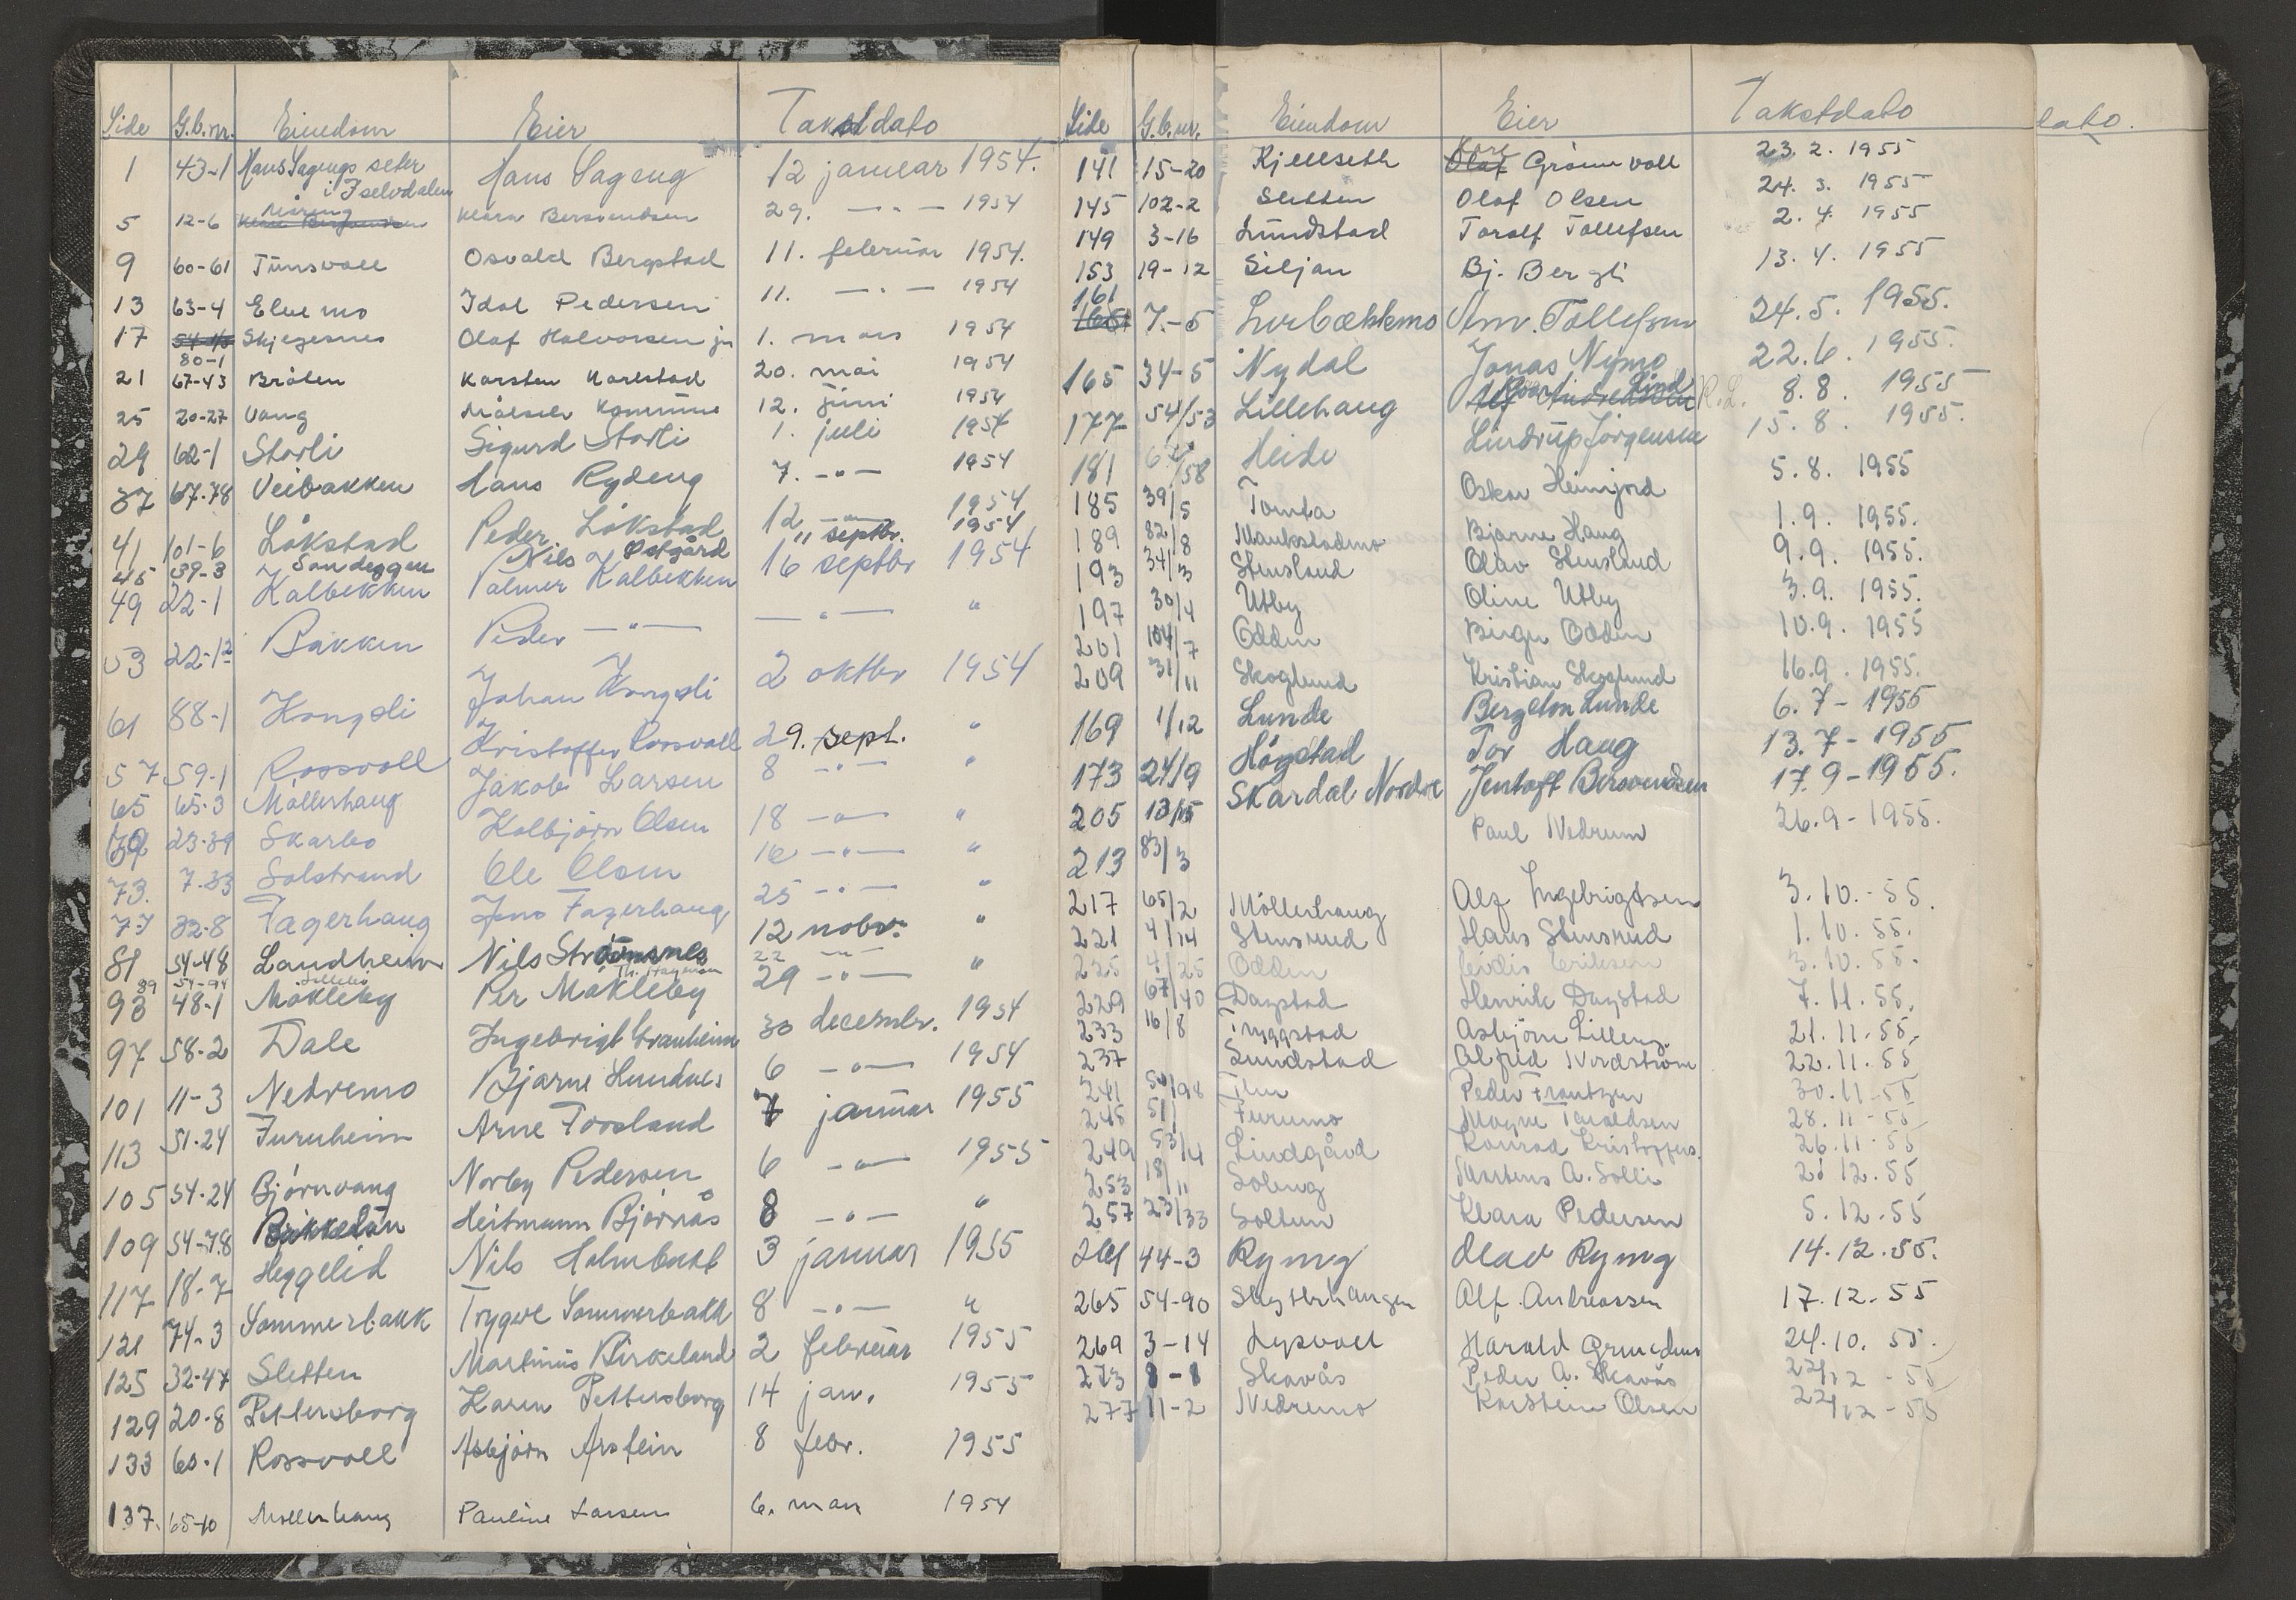 Side G.b.nr. Eiendom Eier Takstdato
1 43-1 Hans Sagengs seter i Iselvdalen Hans Sageng 12 januar 1954.
5 12-6 Moreng Klara Bersvendsen 29. — " — 1954
9 60-61 Tunsvoll Osvald Bergstad 11. februar 1954.
13 63-4 Elvemo Idol Pedersen 11. — " — 1954
17 80-1 Skjeggesnes Olaf Halvorsen jr 1. mars 1954
21 67-43 Bråten Karsten Karlstad 20. mai 1954
25 20-27 Vang Målselv Kommune 12. juni 1954
29 62-1 Storli Sigurd Storli 1. juli 1954
37 67-78 Veibakken Hans Rydeng 7. — " — 1954
41 101-6 Løkstad Peder Løkstad 12 — " — 1954
45 39-3 Sandeggen Nils Østgård 11 septbr. 1954
49 22-1 Kalbekken Palmer Kalbekken 16 septbr 1954
53 22-12 Bakken Peder — " — — " — "
61 88-1 Kongsli Johan Kongsli 2 oktbr 1954
57 59-1 Rossvoll Kristoffer Rossvoll 29. sept. "
65 65-3 Møllerhaug Jakob Larsen 8 — " — "
69 23-39 Skarbo Kolbjørn Olsen 18 — " — "
73. 7-33 Solstrand Ole Olsen 16 — " — "
77 32-8 Fagerhaug Jens Fagerhaug 25 — " — "
81 54-48 Landheim Nils Strømsnes 12 nobr. "
89 54-94 Lillebo Th. Hagman 22 — " —
93 48-1 Møkleby Per Møkleby 29 — " — "
97 58-2 Dale Ingebrigt Granheim 30 decembr. 1954
101 11-3 Nedremo Bjarne Hundnes 6 — " — 1954
113 51-24 Furuheim Arne Fossland 7 januar 1955
105 54-24 Bjørnvang Norby Pedersen 6 — " — 1955
109 54-78 Birkelån Heitmann Bjørnås 8 — " — "
117 18-7 Heggelid Nils Holmbakk 3 januar 1955
121 74-3 Sommerbakk Trygve Sommerbakk 8 — " — "
125 32-47 Sletten Martinus Kirkeland 2 februar 1955
129 20-8 Pettersborg Karen Pettersborg 14 jan. 1955
133 60-1 Rossvoll Asbjørn Arstein 8 febr. 1955
137. 65-10 Møllerhaug Pauline Larsen 6. mars 1954
Side G.b.nr. Eiendom Eier Takstdato
141 15-20 Kjellseth Kåre Olaf Grønvoll 23. 2. 1955
145 102-2 Sletten Olaf Olsen 24. 3. 1955
149 3-16 Lundstad Toralf Tollefsen 2. 4. 1955
153 19-12 Siljan Bj. Bergli 13. 4. 1955
161 7-5 Lurbækkmo Am. Tollefsen 24. 5. 1955.
165 34-5 Nydal Jonas Nymo 22. 6. 1955.
177 54/53 Lillehaug Lind R.L. 8. 8. 1955
181 /58 Heide Lindrup Jørgensen 15. 8. 1955.
185 39/5 Tomta Oskar Heimjord 5. 8. 1955
189 82/8 Maukstadmo Bjarne Haug 1. 9. 1955.
193 34/3 Stensland Olav Stensland 9. 9. 1955.
197 30/4 Utby Oline Utby 3. 9. 1955.
201 104/7 Odden Birger Odden 10. 9. 1955
209 31/11 Skoglund Kristian Skoglund 16. 9. 1955.
169 1/12 Lunde Bergeton Lunde 6. 7 - 1955
173 24/9 Høgstad Tor Haug 13. 7 - 1955
205 13/15 Skardal Nordre Jentoft Bersvendsen 17. 9 - 1955.
213 83/3 Paul Nedrum 26. 9 - 1955.
217 65/2 Møllerhaug Alf Ingebrigtsen 3. 10. - 55.
221 4/14 Stensrud Hans Stensrud 1. 10. 55.
225 4/25 Odden Eidis Eriksen 3. 10. 55.
229 67/40 Dagstad Henrik Dagstad 7. 11. 55.
233 16/8 Tryggstad Asbjørn Lilleng 21. 11. 55.
237 Sundstad Alfred Nordstrøm 22. 11. 55
241 54/98 Peder Frantzen 30. 11 - 55
245 51/ Furumo Magne Taraldsen 28. 11 - 55
249 53/14 Lindgård Konrad Kristoffers. 26. 11 - 55
253 18/11 Soleng Martens A. Solli 21 12. 55
257 23/33 Soltun Klara Pedersen 5. 12. 55
261 44-3 Ryeng Olav Ryeng 14. 12. 55.
265 54-90 Skytterhaugen Alf. Andreassen 17. 12. 55
269 3-14 Lysvoll Harald Grundnes 24. 10. 55.
273 8-8 Skavås Peder A. Skavås 22/12 - 55
277 11-2 Nedremo Karstein Olsen 22/12 - 55
dato.